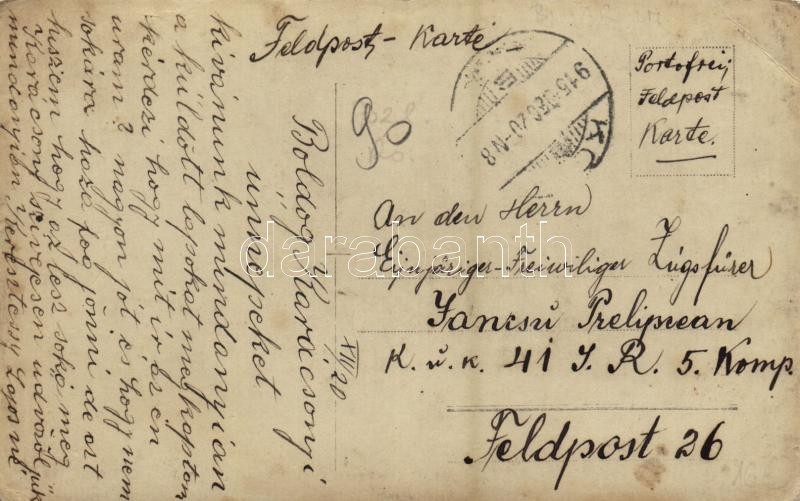 Feldpost - Karte
Portofrei
Feldpost
Karte.
915 DEC 20 N 8
90
An den Herrn
Einjäriger-Freiwiliger Zugsfürer
Jancsu Prelipcean
K. u. K. 41 I. R. 5. Komp.
Feldpost 26
XII/20
Boldog Karácsonyi
ünnepeket
kivánunk mindanyian
a küldött lapokat megkaptam
kérdezi hogy mit ir az én
uram? nagyon jót és hogy nem
sokára haza fog jönni de azt
hiszem hogy az lesz soká meg
Karacsony szivesen üdvözöljük
mindanyien
darabanth